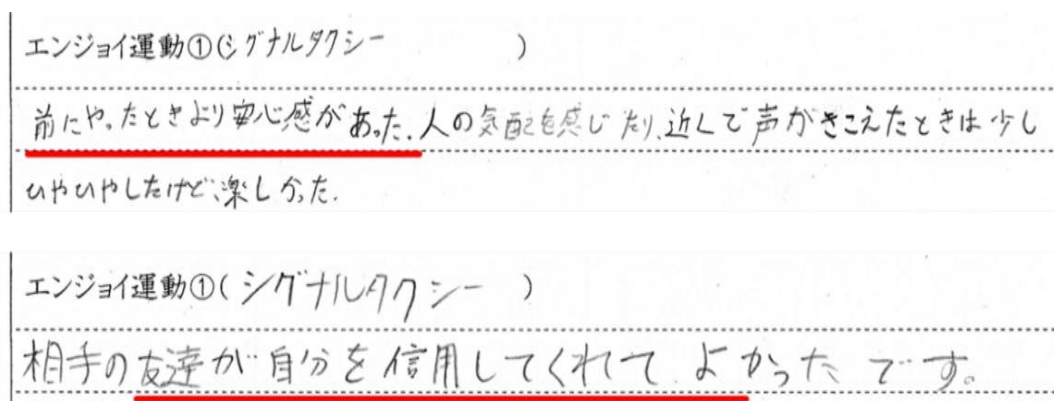 エンジョイ運動①(シグナルタクシー)
前にやったときより安心感があった。人の気配を感じたり、近くで声がきこえたときは少し
ひやひやしたけど、楽しかった。
エンジョイ運動①(シグナルタクシー)
相手の友達が自分を信用してくれてよかったです。